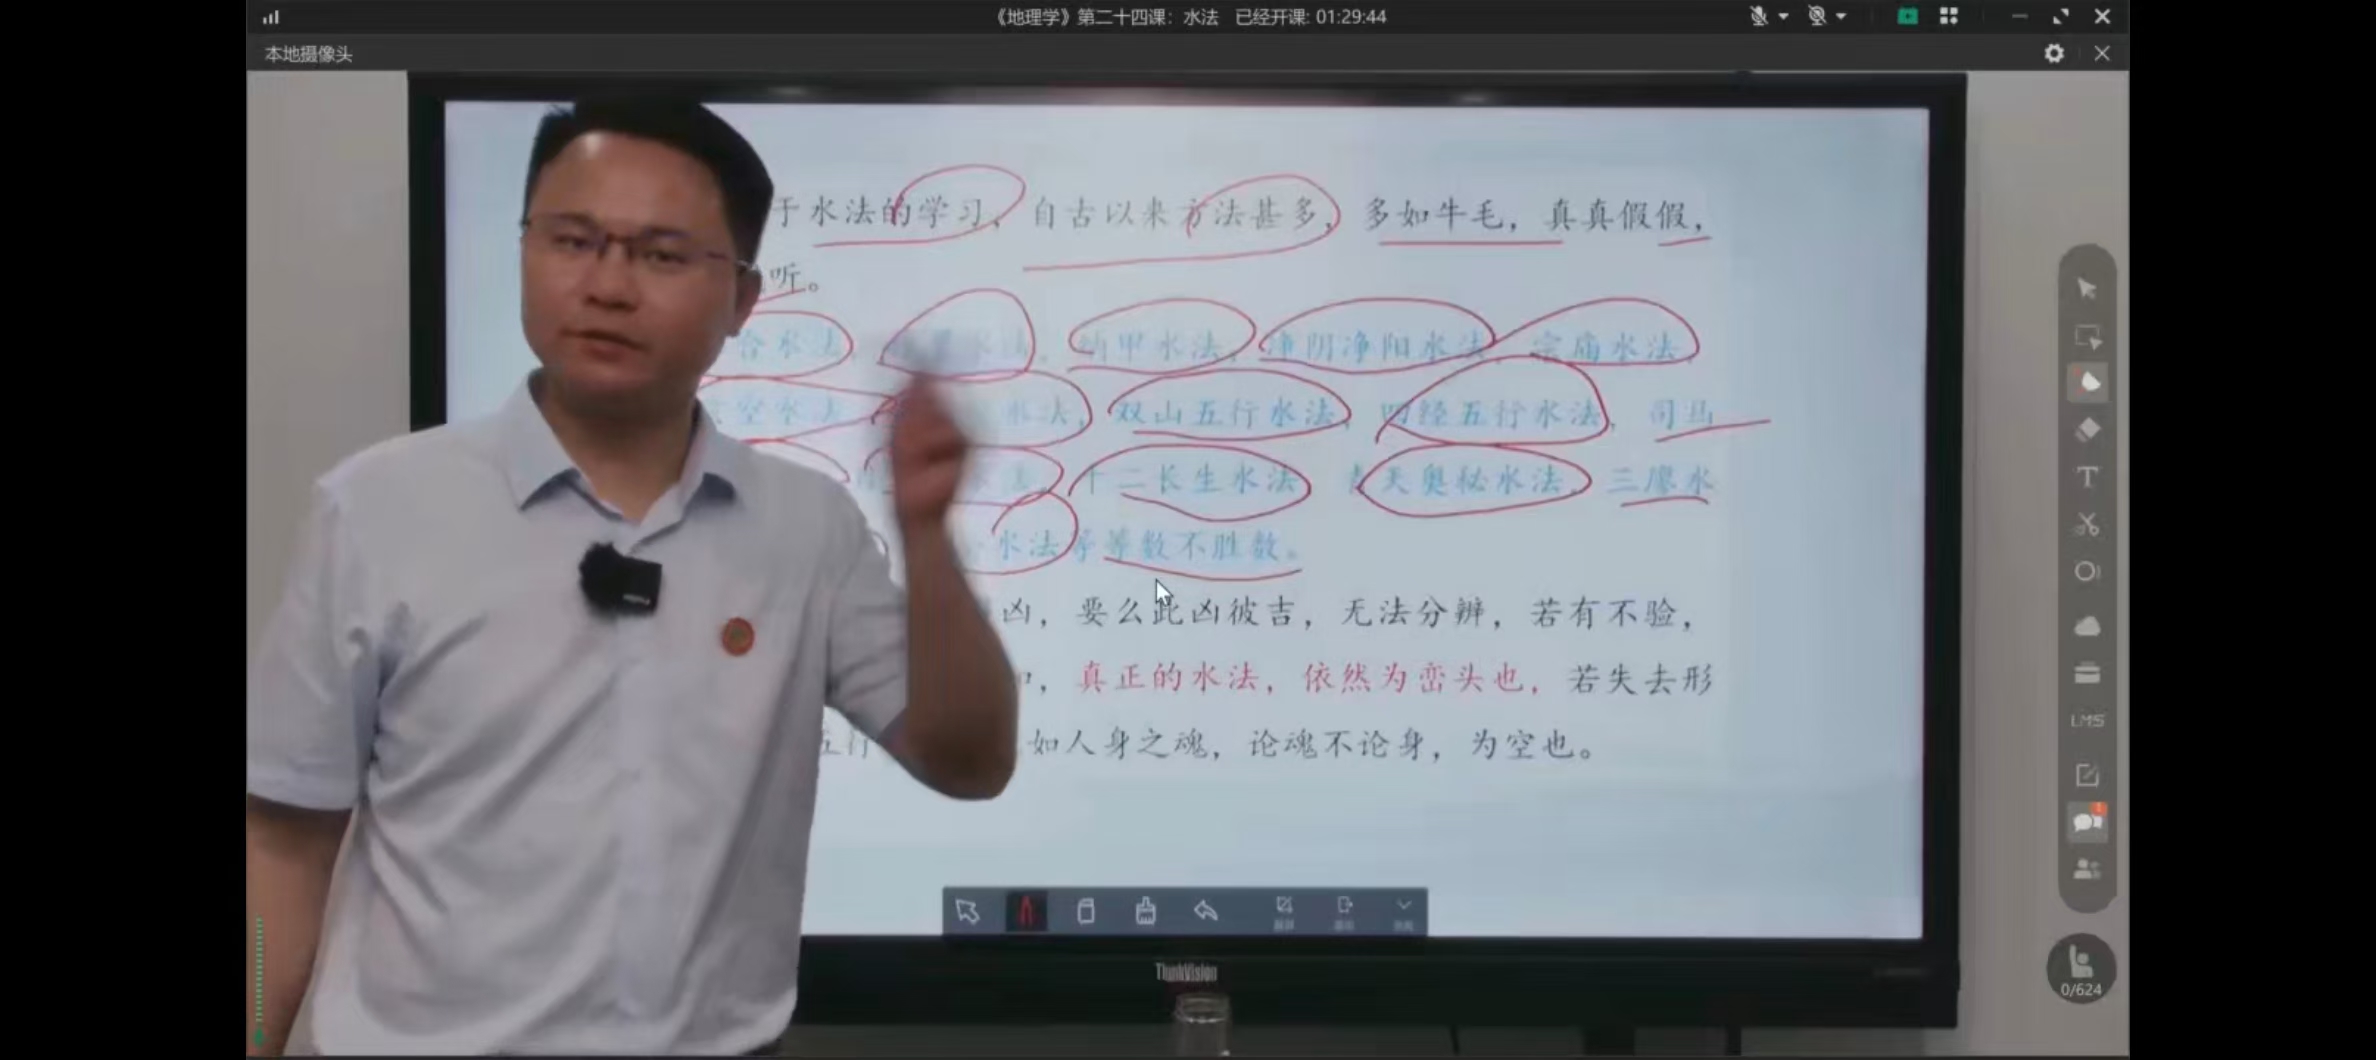 《地理学》第二十四课：水法 已经开课: 01:29:44
本地摄像头
于水法的学习，自古以来方法甚多，多如牛毛，真真假假，
听。
合水法，水法，纳甲水法，净阴净阳水法，宗庙水法，
空水法，水法，双山五行水法，四经五行水法，司马
十二长生水法，青天奥秘水法，三廖水
水法等等数不胜数。
凶，要么此凶彼吉，无法分辨，若有不验，
真正的水法，依然为峦头也，若失去形
五行 如人身之魂，论魂不论身，为空也。
T
LMS
0/624
ThinkVision